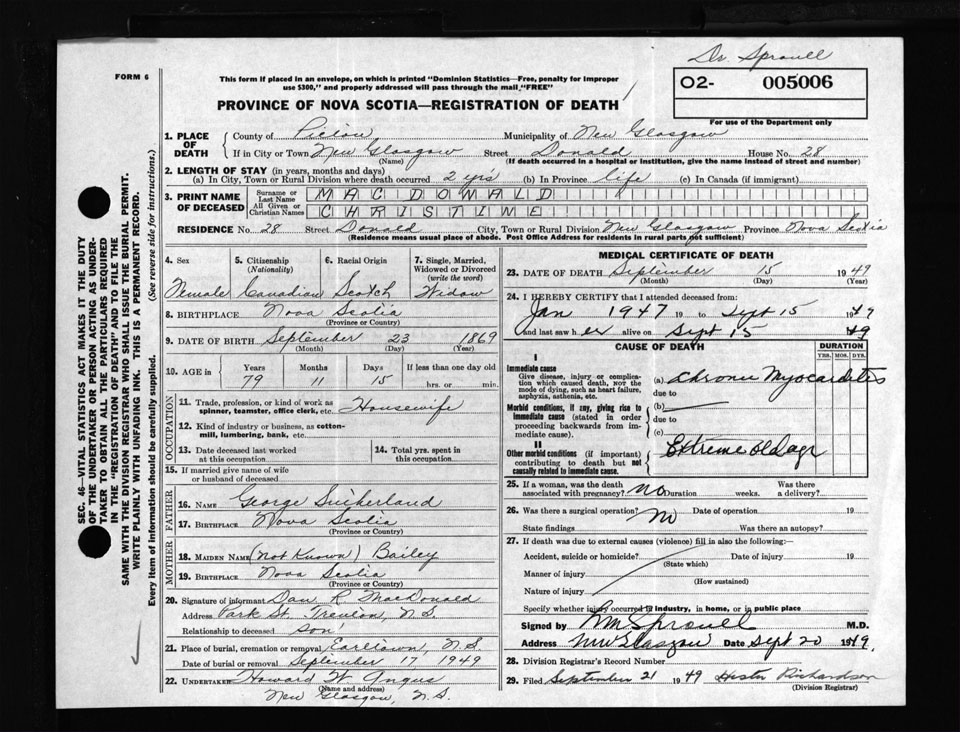 Dr. Sproull
FORM 6
This form if placed in an envelope, on which is printed "Dominion Statistics—Free, penalty for improper
use $300," and properly addressed will pass through the mail "FREE"
O2- 005006
For use of the Department only
PROVINCE OF NOVA SCOTIA—REGISTRATION OF DEATH
1. PLACE OF DEATH
County of Pictou Municipality of New Glasgow
If in City or Town New Glasgow Street Donald House No. 28
(Name) (If death occurred in a hospital or institution, give the name instead of street and number)
2. LENGTH OF STAY (in years, months and days)
(a) In City, Town or Rural Division where death occurred 2 yrs (b) In Province life (c) In Canada (if immigrant)
3. PRINT NAME OF DECEASED
Surname or Last Name MAC DONALD
All Given or Christian Names CHRISTINE
RESIDENCE No. 28 Street Donald City, Town or Rural Division New Glasgow Province Nova Scotia
(Residence means usual place of abode. Post Office Address for residents in rural parts not sufficient)
4. Sex
Female
5. Citizenship
(Nationality)
Canadian
6. Racial Origin
Scotch
7. Single, Married,
Widowed or Divorced
(write the word)
Widow
8. BIRTHPLACE Nova Scotia
(Province or Country)
9. DATE OF BIRTH September 23 1869
(Month) (Day) (Year)
10. AGE in
Years Months Days If less than one day old
79 11 15 hrs. or min.
OCCUPATION
11. Trade, profession, or kind of work as
spinner, teamster, office clerk, etc. Housewife
12. Kind of industry or business, as cotton-
mill, lumbering, bank, etc.
13. Date deceased last worked
at this occupation
14. Total yrs. spent in
this occupation
15. If married give name of wife
or husband of deceased
FATHER
16. NAME George Sutherland
17. BIRTHPLACE Nova Scotia
(Province or Country)
MOTHER
18. MAIDEN NAME (not Known) Bailey
19. BIRTHPLACE Nova Scotia
(Province or Country)
20. Signature of informant Dan R MacDonald
Address Park St. Trenton, N.S.
Relationship to deceased son
21. Place of burial, cremation or removal Earltown, N.S.
Date of burial or removal September 17 1949
22. UNDERTAKER Howard W Angus
(Name and address)
New Glasgow, N.S.
MEDICAL CERTIFICATE OF DEATH
23. DATE OF DEATH September 15 1949
(Month) (Day) (Year)
24. I HEREBY CERTIFY that I attended deceased from:
Jan 1947 19 to Sept 15 1949
and last saw her alive on Sept 15 49
CAUSE OF DEATH
DURATION
YRS. MOS. DYS.
I
Immediate cause
Give disease, injury or compli-
cation which caused death, not the
mode of dying, such as heart failure,
asphyxia, asthenia, etc.
(a) Chronic Myocarditis
due to
Morbid conditions, if any, giving rise to
immediate cause (stated in order
proceeding backwards from im-
mediate cause).
(b)
due to
(c)
II
Other morbid conditions (if important)
contributing to death but not
causally related to immediate cause.
Extreme old age
25. If a woman, was the death
associated with pregnancy? no Duration weeks. Was there
a delivery?
26. Was there a surgical operation? no Date of operation 19
State findings Was there an autopsy?
27. If death was due to external causes (violence) fill in also the following:—
Accident, suicide or homicide? Date of injury 19
(State which)
Manner of injury
(How sustained)
Nature of injury
Specify whether injury occurred in industry, in home, or in public place
Signed by Sproull M.D.
Address New Glasgow Date Sept 20 1949.
28. Division Registrar's Record Number
29. Filed September 21 1949 Hester Richardson
(Division Registrar)
SEC. 46—VITAL STATISTICS ACT MAKES IT THE DUTY
OF THE UNDERTAKER OR PERSON ACTING AS UNDER-
TAKER TO OBTAIN ALL THE PARTICULARS REQUIRED
IN THE "REGISTRATION OF DEATH" AND TO FILE THE
SAME WITH THE DIVISION REGISTRAR WHO SHALL ISSUE THE BURIAL PERMIT.
WRITE PLAINLY WITH UNFADING INK. THIS IS A PERMANENT RECORD.
Every item of information should be carefully supplied. (See reverse side for instructions.)